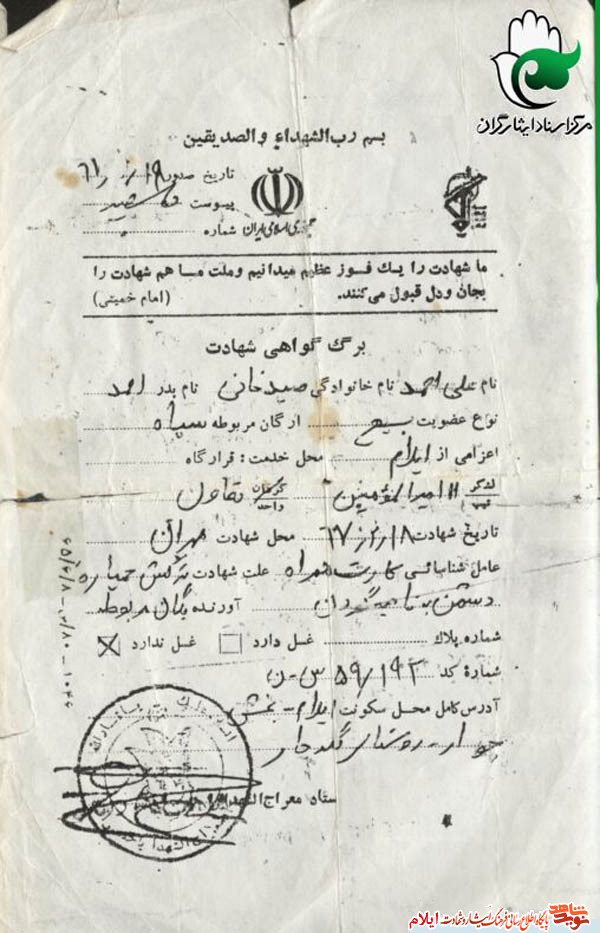 مرکز اسناد ایثارگران
بسم رب الشهداء والصدیقین
تاریخ صدور
پیوست
جمهوری اسلامی ایران
شماره
ما شهادت را یک فوز عظیم میدانیم وملت ما هم شهادت را
بجان ودل قبول می‌کنند. (امام خمینی)
برگ گواهی شهادت
نام علی احمد نام خانوادگی صیدخانی نام پدر احمد
نوع عضویت بسیج ارگان مربوطه سپاه
اعزامی از ایلام محل خدمت: قرارگاه
لشکر تیپ ۱۱ امیرالمؤمنین گردان واحد تعاون
تاریخ شهادت ۶۷/۲/۱۸ محل شهادت مهران
عامل شناسائی کارت همراه علت شهادت ترکش خمپاره
دشمن به ناحیه گردن آورنده یگان مربوطه
شماره پلاک غسل دارد غسل ندارد
شمارهٔ کد ۵۹/۱۹۲ س-ن
آدرس کامل محل سکونت ایلام - بخش
روستای
ستاد معراج الشهداء
نوید شاهد پایگاه اطلاع رسانی فرهنگ ایثار و شهادت ایلام